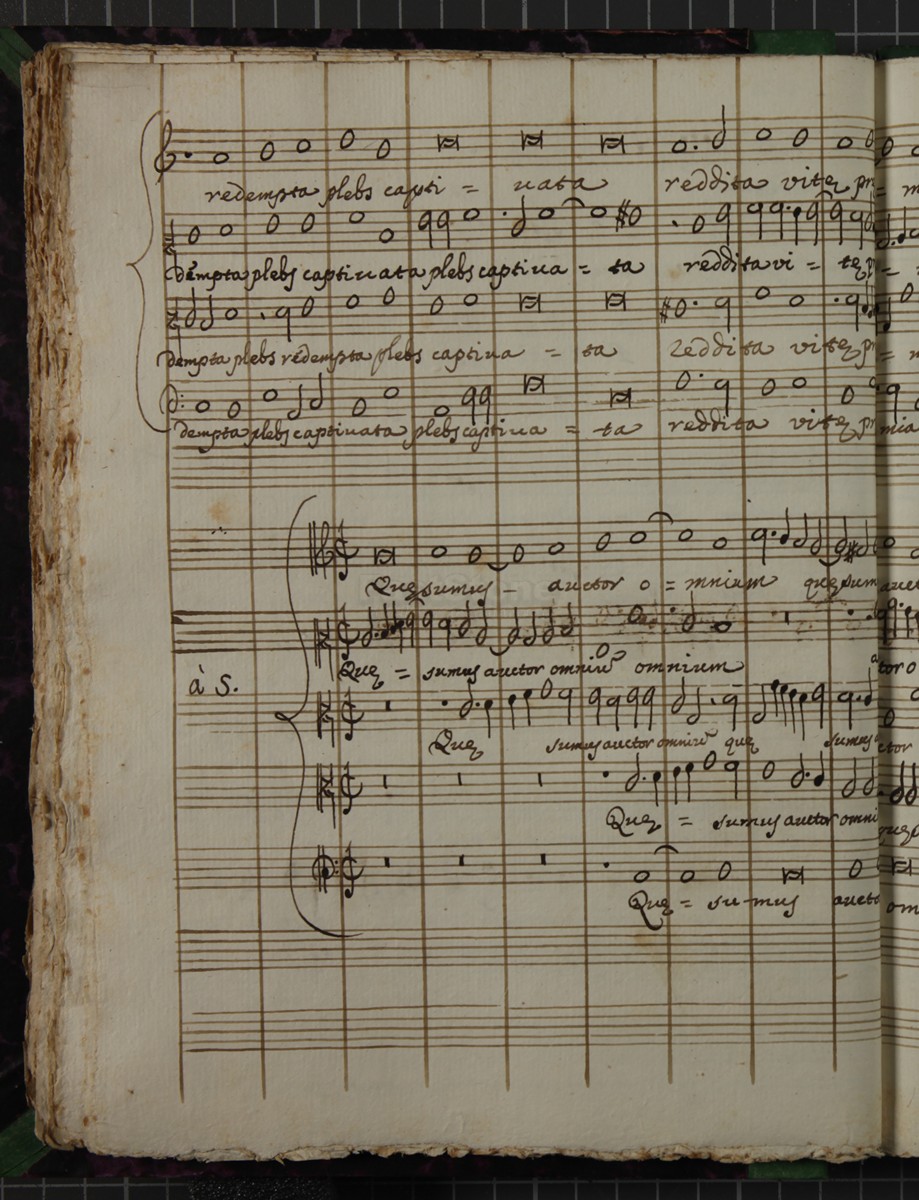 redempta plebs capti = uata reddita vitę
dempta plebs captiuata plebs captiua = ta reddita vi = tę
dempta plebs redempta plebs captiua = ta reddita vitę
dempta plebs captiuata plebs captiua = ta reddita vitę
Quęsumus - auctor o = mnium quęsum
Quę = sumus auctor omniũ omnium
à 5.
Quę sumus auctor omniũ quę sumus
Quę = sumus auctor omni
Quę = su-mus aucto